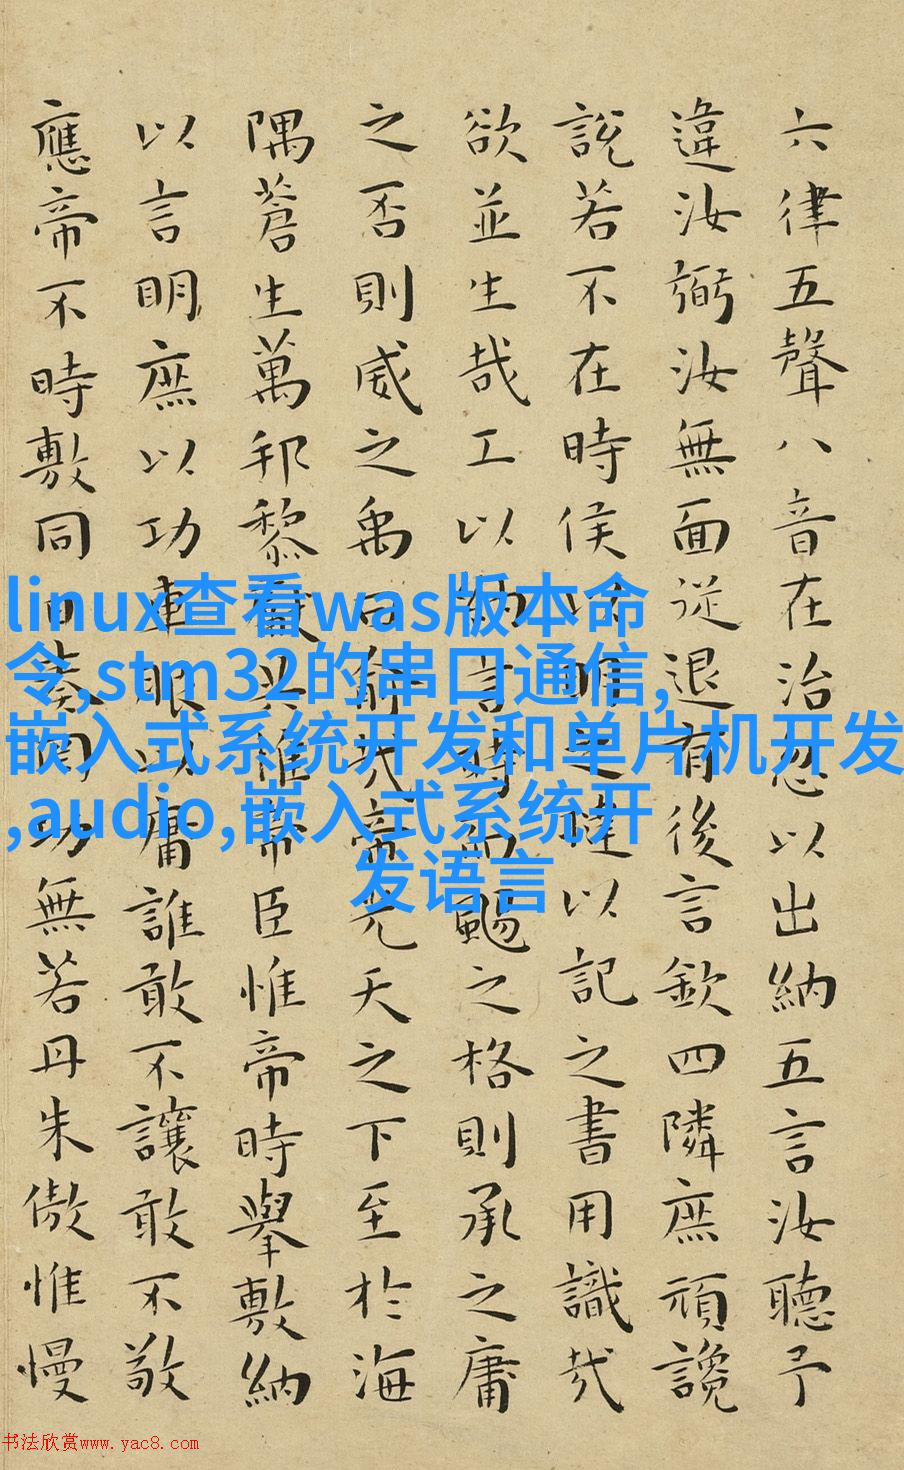 六律五聲八音在治忽以出納五言汝聽予
違汝弼汝無面從退有後言欽四隣庶頑讒
說若不在時侯以明之撻以記之書用識哉
欲並生哉工以納言時而颺之格則承之庸
之否則威之禹曰俞哉帝光天之下至於海
隅蒼生萬邦黎獻共惟帝臣惟帝時舉敷納
以言明庶以功車服以庸誰敢不讓敢不敬
應帝不時敷同日奏罔功無若丹朱傲惟慢
linux查看was版本命
令,stm32的串口通信,
嵌入式系统开发和单片机开发
,audio,嵌入式系统开
发语言
书法欣赏www.yac8.com